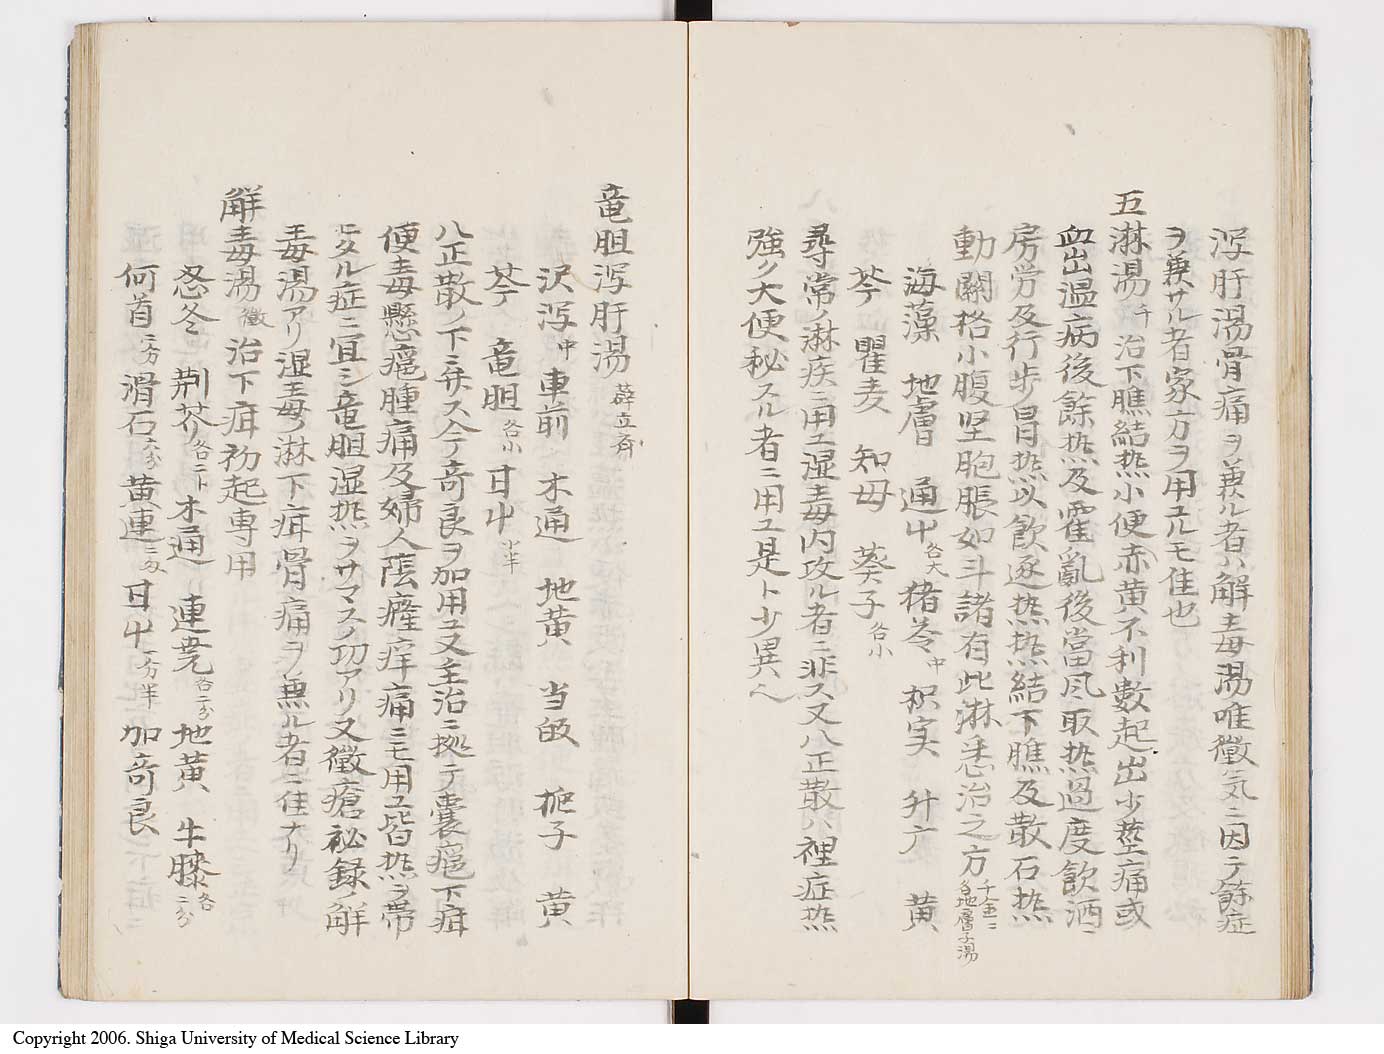 泻肝湯骨痛ヲ兼ル者ハ解毒湯唯黴気ニ因テ餘症
ヲ兼サル者家方ヲ用ユルモ佳也
五淋湯千治下膲結热小便赤黄不利數起出少莖痛或
血出温病後餘热及霍亂後當風取热過度飲酒
房労及行歩冒热以飲逐热热結下膲及散石热
動關格小腹坚胞脹如斗諸有此淋悉治之方千金ニ地膚子湯
海藻 地膚 通屮各大猪苓中枳実 升广 黄
芩瞿麦 知母 葵子各小
尋常ノ淋疾ニ用ユ湿毒内攻ル者ニ非ス又八正散ハ裡症热
強ク大便秘スル者ニ用ユ是ト少異ヘ
竜胆泻肝湯薛立斎
沢泻中車前 木通 地黄 当皈 梔子 黄
芩 竜胆各小甘屮小半
八正散ノ下ニ弁ス今奇良ヲ加用ユ又主治ニ拠テ嚢癰下疳
便毒懸癰腫痛及婦人陰癃痒痛ニモ用ユ皆热ヲ帯
ヒタル症ニ宜シ竜胆湿热ヲサマスノ功アリ又黴瘡祕録ノ解
毒湯アリ湿毒ノ淋下疳骨痛ヲ兼ル者ニ佳ナリ
解毒湯黴治下疳初起専用
忍冬 荆芥各二卜木通 連壳各二分地黄 牛膝各二分
何首二分滑石六分黄連二分甘屮一分半加奇良
Copyright 2006. Shiga University of Medical Science Library